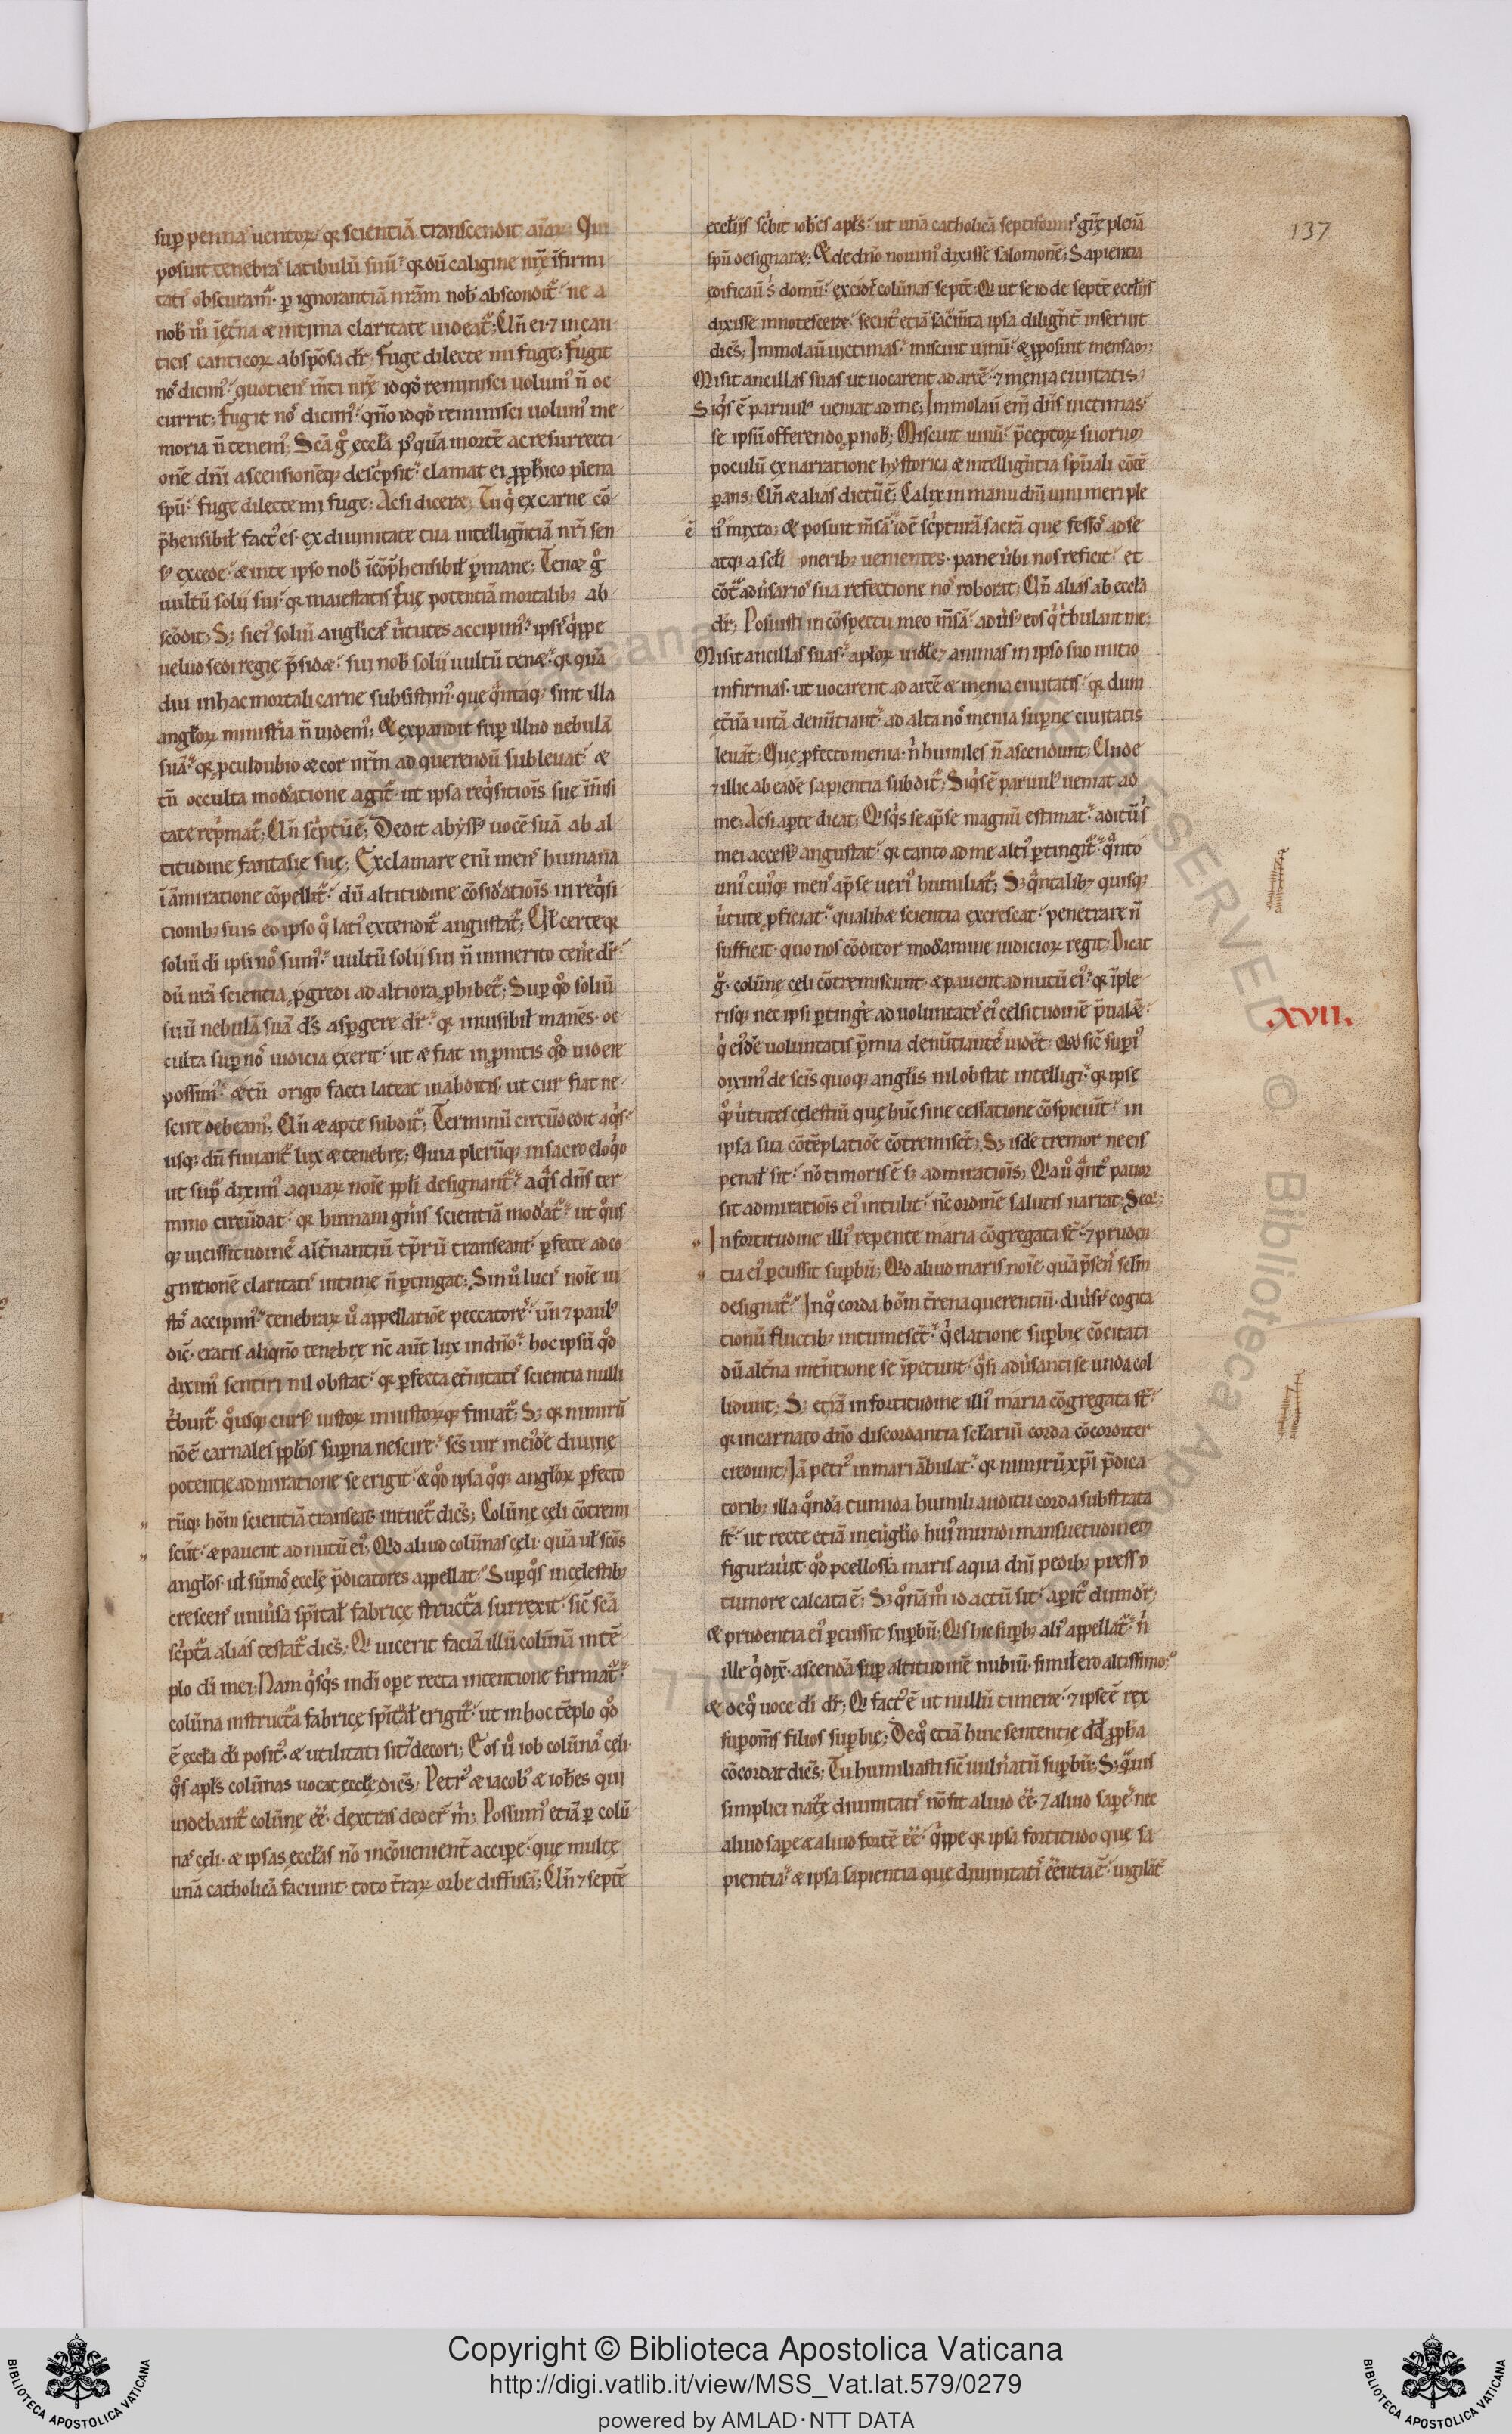 137
sup penna uentoꝝ. qꝛ scientiā transcendit aīaꝝ; Qui
posuit tenebras latibulū suū. qꝛ dū caligine nr̄ę īfirmi
tatis obscuramur. p ignorantiā nrām nob abscondit. ne a
nob m̊ īęt̄na & intima claritate uideat᷑; Un̄ ei ⁊ in can
ticis canticoꝝ ab spōsa dr̄; Fuge dilecte mi fuge; Fugit
nos dicim᷒. quotiens m̄ti nrę id qd̊ reminisci uolum᷒ n̄ oc
currit; Fugit nos dicim᷒. qn̄o id qd̊ reminisci uolum᷒ me
moria n̄ tenem᷒; Scā g̊ ęccl̄a p᷒quā mortē ac resurrecti
onē dn̄i ascensionēq; desc̍psit. clamat ei ꝓph̄ico plena
spū. fuge dilecte mi fuge; Acsi diceret; Tu q̍ ex carne cō
p̄hensibil̄ fact᷒ es. ex diuinitate tua intellign̄tiā nr̄i sen
s᷒ excede. & in te ipso nob īcōp̄hensibil̄ p̱mane; Tenet g̊
uultū solii sui. qꝛ maiestatis suę potentiā mortalib; ab
scōdit; S; si ei᷒ soliū anglicas u̍tutes accipim᷒. ipsis q̍ppe
uelud sedi regię p̄sidet. sui nob solii uultū tenet. qꝛ quā
diu in hac mortali carne subsistim᷒. que q̄ntaq; sint illa
angl̄oꝝ minist̍ia n̄ uidem᷒; & expandit sup illud nebulā
suā. qꝛ ꝓculdubio & cor nr̄m ad querendū subleuat. &
tn̄ occulta mod̄atione agit᷑. ut ipsa req̍sitiōis sue īm̄si
tate rep̍mat᷑; Un̄ sc̍ptū ē; Dedit abyss᷒ uocē suā ab al
titudine fantasie suę; Exclamare eni mens humana
ī ām̄iratione cōpellit᷑. dū altitudine cōsid̄atiōis in req̍si
tionib; suis eo ipso q̊ lati᷒ extendit᷑ angustat᷑; Ul̄ certe qꝛ
soliū di ipsi nos sum᷒. uultū solii sui n̄ inmerito tenē dr̄.
dū nrā scientia ꝓgredi ad altiora ꝓhibet᷑; Sup qd̊ soliū
suū nebulā suā ds̄ aspgere dr̄. qꝛ inuisibil̄ manēs. oc
culta sup nos iudicia exerit. ut & fiat in ꝓmtis qd̊ uidere
possim᷒. & tn̄ origo facti lateat in abditis. ut cur fiat ne
scire debeam᷒; Un̄ & apte subdit᷑; Terminū circūdedit aq̍s.
usq; dū finiant᷑ lux & tenebre; Quia plerūq; in sacro eloq̍o
ut sup̄ dixim᷒ aquaꝝ noīe ppl̄i designant᷑. aq̍s dn̄s ter
mino circūdat. qꝛ humani gn̄is scientiā mod̄at᷑. ut q̊us
q; uicissitudinē alt̄nantiū tp̄rū transeant. pfecte ad co
gnitionē claritatis intime n̄ ptingat; Sin ů lucis noīe iu
stos accipim᷒. tenebraꝝ ů appellatiōe peccatores. un̄ ⁊ paul᷒
dic̄. eratis aliqn̄o tenebre nc̄ aut̄ lux in dn̄o. hoc ipsū qd̊
dixim᷒ sentiri nil obstat. qꝛ pfecta et̄nitatis scientia nulli
t̍buit᷑. q̊usq; curs᷒ iustoꝝ iniustoꝝq; finiat᷑; S; qꝛ nimirū
nō ē carnales ppl̄os supna nescire. scs̄ uir in ei᷒dē diuine
potentię admiratione se erigit. & qd̊ ipsa q̊q; angl̄oꝝ pfecto
rūq; hōm scientiā transeat intuet᷑ dicēs; Colūnę cęli cōtremi
scūt. & pauent ad nutū ei᷒; Qd aliud colūnas cęli. quā ul̄ scōs
angl̄os. ul̄ sūmos ęccl̄ę p̄dicatores appellat. Sup q̊s in celestib;
crescens uniu̍sa sp̄ital̄ fabricę structa surrexit. sic̄ scā
sc̍pt̄a alias testat᷑ dicēs; Qi uicerit faciā illū colūnā in tē
plo di mei; Nam q̍sq̍s in di opere recta intentione firmat᷑.
colūna in structa fabricę sp̄ital̄ erigit᷑. ut in hoc tēplo qd̊
ē ęccl̄a di posit᷒. & utilitati sit ⁊ decori; Eos ů iob colūnas cęli.
q̊s apl̄s colūnas uocat ęccl̄ę dicēs; Petr᷒ & iacob᷒ & ioh̄es qui
uidebant᷑ colūne ēē. dextras deder̄ m̍; Possum᷒ etiā p colū
nas cęli. & ipsas ęccl̄as nō incōuenient̄ accipe. que multę
unā catholicā faciunt. toto t̄raꝝ orbe diffusā; Un̄ ⁊ septē
eccl̄iis sc̍bit ioh̄es apl̄s. ut unā catholicā septiformis gr̄ę plenā
spū designaret; & de dn̄o nouim᷒ dixisse salomonē; Sapientia
edificau̍ s̍ domū. excidit colūnas septē; Qi ut se id de septē eccl̄iis
dixisse innotesceret. secut᷒ etiā sac̄m̄ta ipsa diligēt̄ inseruit
dicēs; Immolau̍ uictimas. miscuit uinū. & ꝓposuit mensam;
Misit ancillas suas ut uocarent ad arcē. ⁊ menia ciuitatis;
Siq̍s ē paruul᷒ ueniat ad me; Immolau̍ em̄ dn̄s uictimas.
se ipsū offerendo p nob; Miscuit uinū. p̄ceptoꝝ suorum
poculū ex narratione hystorica & intelligēntia spūali cōtē
perans; Un̄ & alias dictū ē; Calix in manu dn̄i uini meri ple
n᷒ mixto; & posuit m̄sā. idē sc̍pturā sacrā que fessos ad se
ē
atq; a scl̄i onerib; uenientes. pane u̍bi nos reficit. et
cōt̄ adu̍sarios sua refectione nos roborat; Un̄ alias ab eccl̄a
dr̄; Posuisti in cōspectu meo m̄sā. adu̍s᷒ eos q̍ t̍bulant me;
Misit ancillas suas. apl̄oꝝ uidel̄; animas in ipso suo initio
infirmas. ut uocarent ad arcē & menia ciuitatis. qꝛ dum
et̄nā uitā denūtiant. ad alta nos menia supne ciuitatis
leuāt; Que ꝓfecto menia. n̍ humiles n̄ ascendunt; Unde
⁊ illic ab eadē sapientia subdit᷑; Siq̍s ē paruul᷒ ueniat ad
me; Acsi apte dicat; Qisq̍s se ap̄ se magnū estimat. aditū s̍
mei access᷒ angustat. qꝛ tanto ad me alti᷒ ptingit᷑. q̄nto
uni᷒ cui᷒q; mens ap̄ se ueri᷒ humiliat᷑; S; q̄ntalib; quisq;
u̍tute ꝓficiat. qualibet scientia excrescat. penetrare n̄
sufficit. quo nos cōditor moderamine iudicioꝝ regit; Dicat
g̊. colūnę cęli cōtremiscunt. & pauent ad nutū ei᷒. qꝛ īple
risq; nec ipsi ptingere ad uoluntatis ei᷒ celsitudinē p̄ualēt.
q̍ ei᷒dē uoluntatis p̄mia denūtiantes uidēt. Qd sic̄ supi᷒
dixim᷒ de scīs quoq; angl̄is nil obstat intelligi. qꝛ ipse
qq; u̍tutes celestiū quę hūc sine cessatione cōspiciūt. in
ipsa sua cōtēplatiōe cōtremiscūt; S; isdē tremor ne eis
penal̄ sit. nō timoris ē s; admiratiōis; Qia ů q̄nt᷒ pauor
sit admiratiōis ei᷒ intulit. nc̄ ordinē salutis narrat; Seq̄;
In fortitudine illi᷒ repente maria cōgregata st̄. ⁊ pruden
tia ei᷒ pcussit supbū; Qd aliud maris noīe. quā p̄sens sclm̄
designat᷑. In q̊ corda hōm t̄rena querentiū. diu̍sis cogita
tionū fluctib; intumescūt. q̍ elatione supbię cōcitati
dū alt̄na intētione se īpetunt. q̍si adu̍santi se unda col
lidunt; S; etiā in fortitudine illi᷒ maria cōgregata st̄.
qꝛ incarnato dn̄o discordantia scl̄ariū corda cōcorditer
credunt; Iā petr᷒ in mari ābulat. qꝛ nimirū xp̄i p̄dica
torib; illa q̄ndā tumida humili auditu corda substrata
st̄. ut recte etiā in eu̍gl̄io hui᷒ mundi mansuetudinem
figurau̍it. qd̊ pcellosa maris aqua dn̄i pedib; presso
tumore calcata ē; S; q̊nā m̊ id actū sit. apit᷑ dum dr̄;
& prudentia ei᷒ pcussit supbū; Qis hic supb; ali᷒ appellat᷑. n̍
ille q̍ dix̄. ascendā sup altitudinē nubiū. simil̄ ero altissimo;
& de q̊ uoce di dr̄; Qi fact᷒ ē ut nullū timeret. ⁊ ipse ē rex
sup oms̄ filios supbię; De q̊ etiā huic sententie dd̄ ꝓph̄a
cōcordat dicēs; Tu humiliasti sic̄ uuln̍atū supbū; S; q̄uis
simplici nat̄ę diuinitatis nō sit aliud ēē. ⁊ aliud sape. nec
aliud sape & aliud fortē ēē. q̍ppe qꝛ ipsa fortitudo que sa
pientia. & ipsa sapientia que diuinitatis ēēntia ē. uigilāt̄
.XVII.
Copyright © Biblioteca Apostolica Vaticana
http://digi.vatlib.it/view/MSS_Vat.lat.579/0279
powered by AMLAD·NTT DATA
BIBLIOTECA APOSTOLICA VATICANA
BIBLIOTECA APOSTOLICA VATICANA